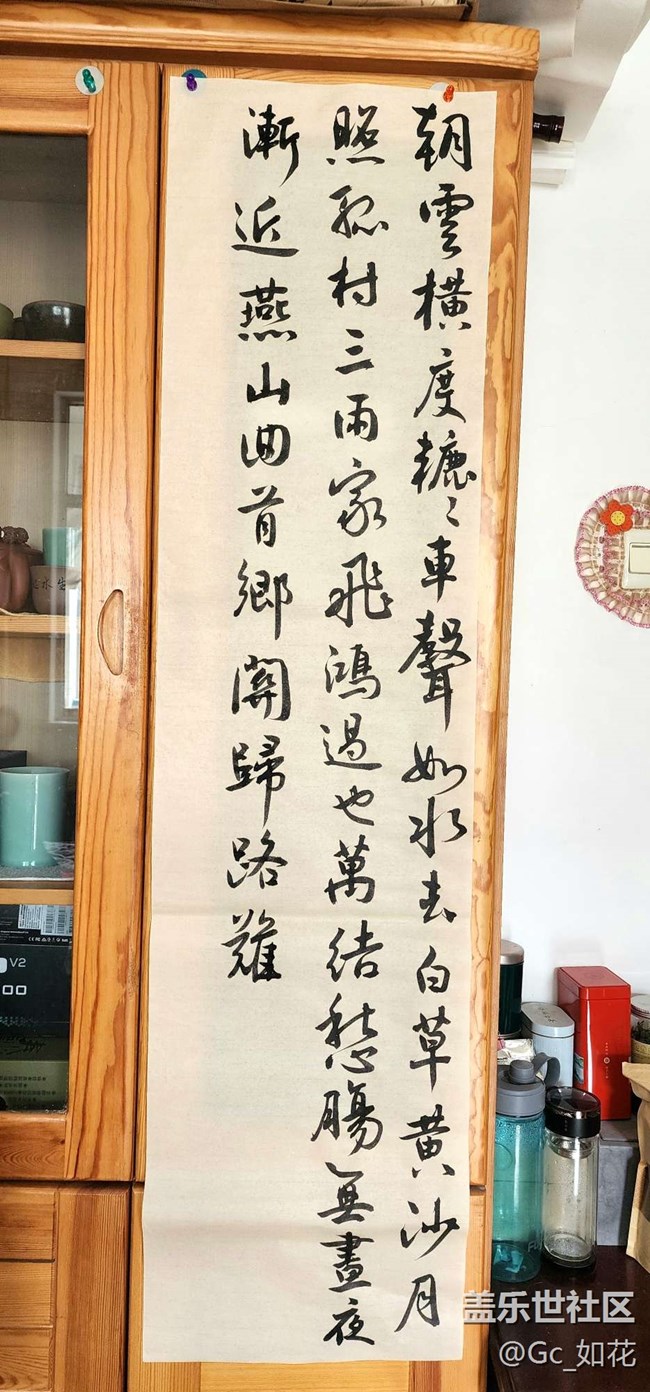 朝雲橫度轆〻車聲如水去白草黃沙月
照孤村三兩家飛鴻過也萬結愁腸無晝夜
漸近燕山回首鄉關歸路難
V2
盖乐世社区
@Gc_如花